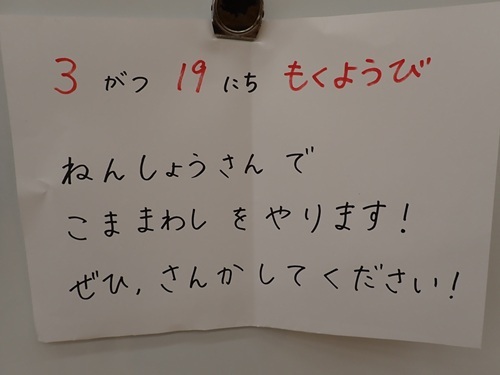 3 がつ 19 にち もくようび
ねんしょうさん で
こままわし を やります！
ぜひ, さんか して ください！